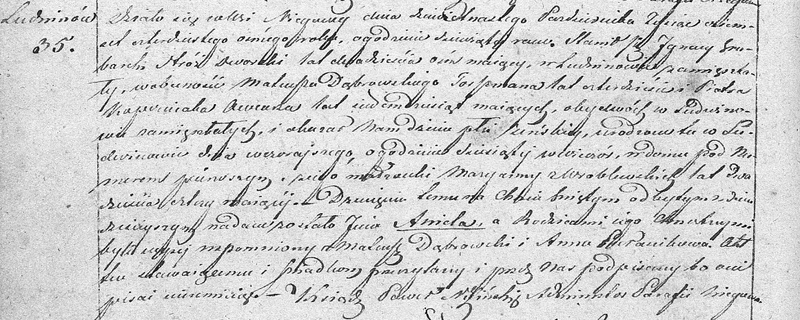 Ludwinów Działo się we Wsi Niegowy dnia dziewiętnastego Października Tysiąc ośm-
35. set czterdziestego ósmego roku, o godzinie dziewiątej rano. Stawił się Ignacy
Stróż Dworski lat dwadzieścia ośm mający, w Ludwinowie zamieszka-
ły, w obecności Mateusza Dąbrowskiego lat czterdzieści i Piotra
lat mających, obydwóch w Ludwino-
wie zamieszkałych, i okazał Nam dziecię płci żeńskiej, urodzone tu w Lu-
dwinowie dnia wczorajszego, o godzinie dziesiątej wieczór, w domu pod Nu-
merem pierwszym, z jego małżonki Maryanny z Wróblewskich lat dwa-
dzieścia cztery mającej. Dziecięciu temu na Chrzcie Świętym odbytym w dniu
dzisiejszym nadane zostało Imię Aniela, a Rodzicami jego Chrzestnymi
byli wyżej wspomniony Mateusz Dąbrowski i Anna Akt
ten stawającemu i Świadkom przeczytany i przez Nas podpisany bo oni
pisać nieumieją. Ksiądz Paweł Administrator Parafii Niegowa